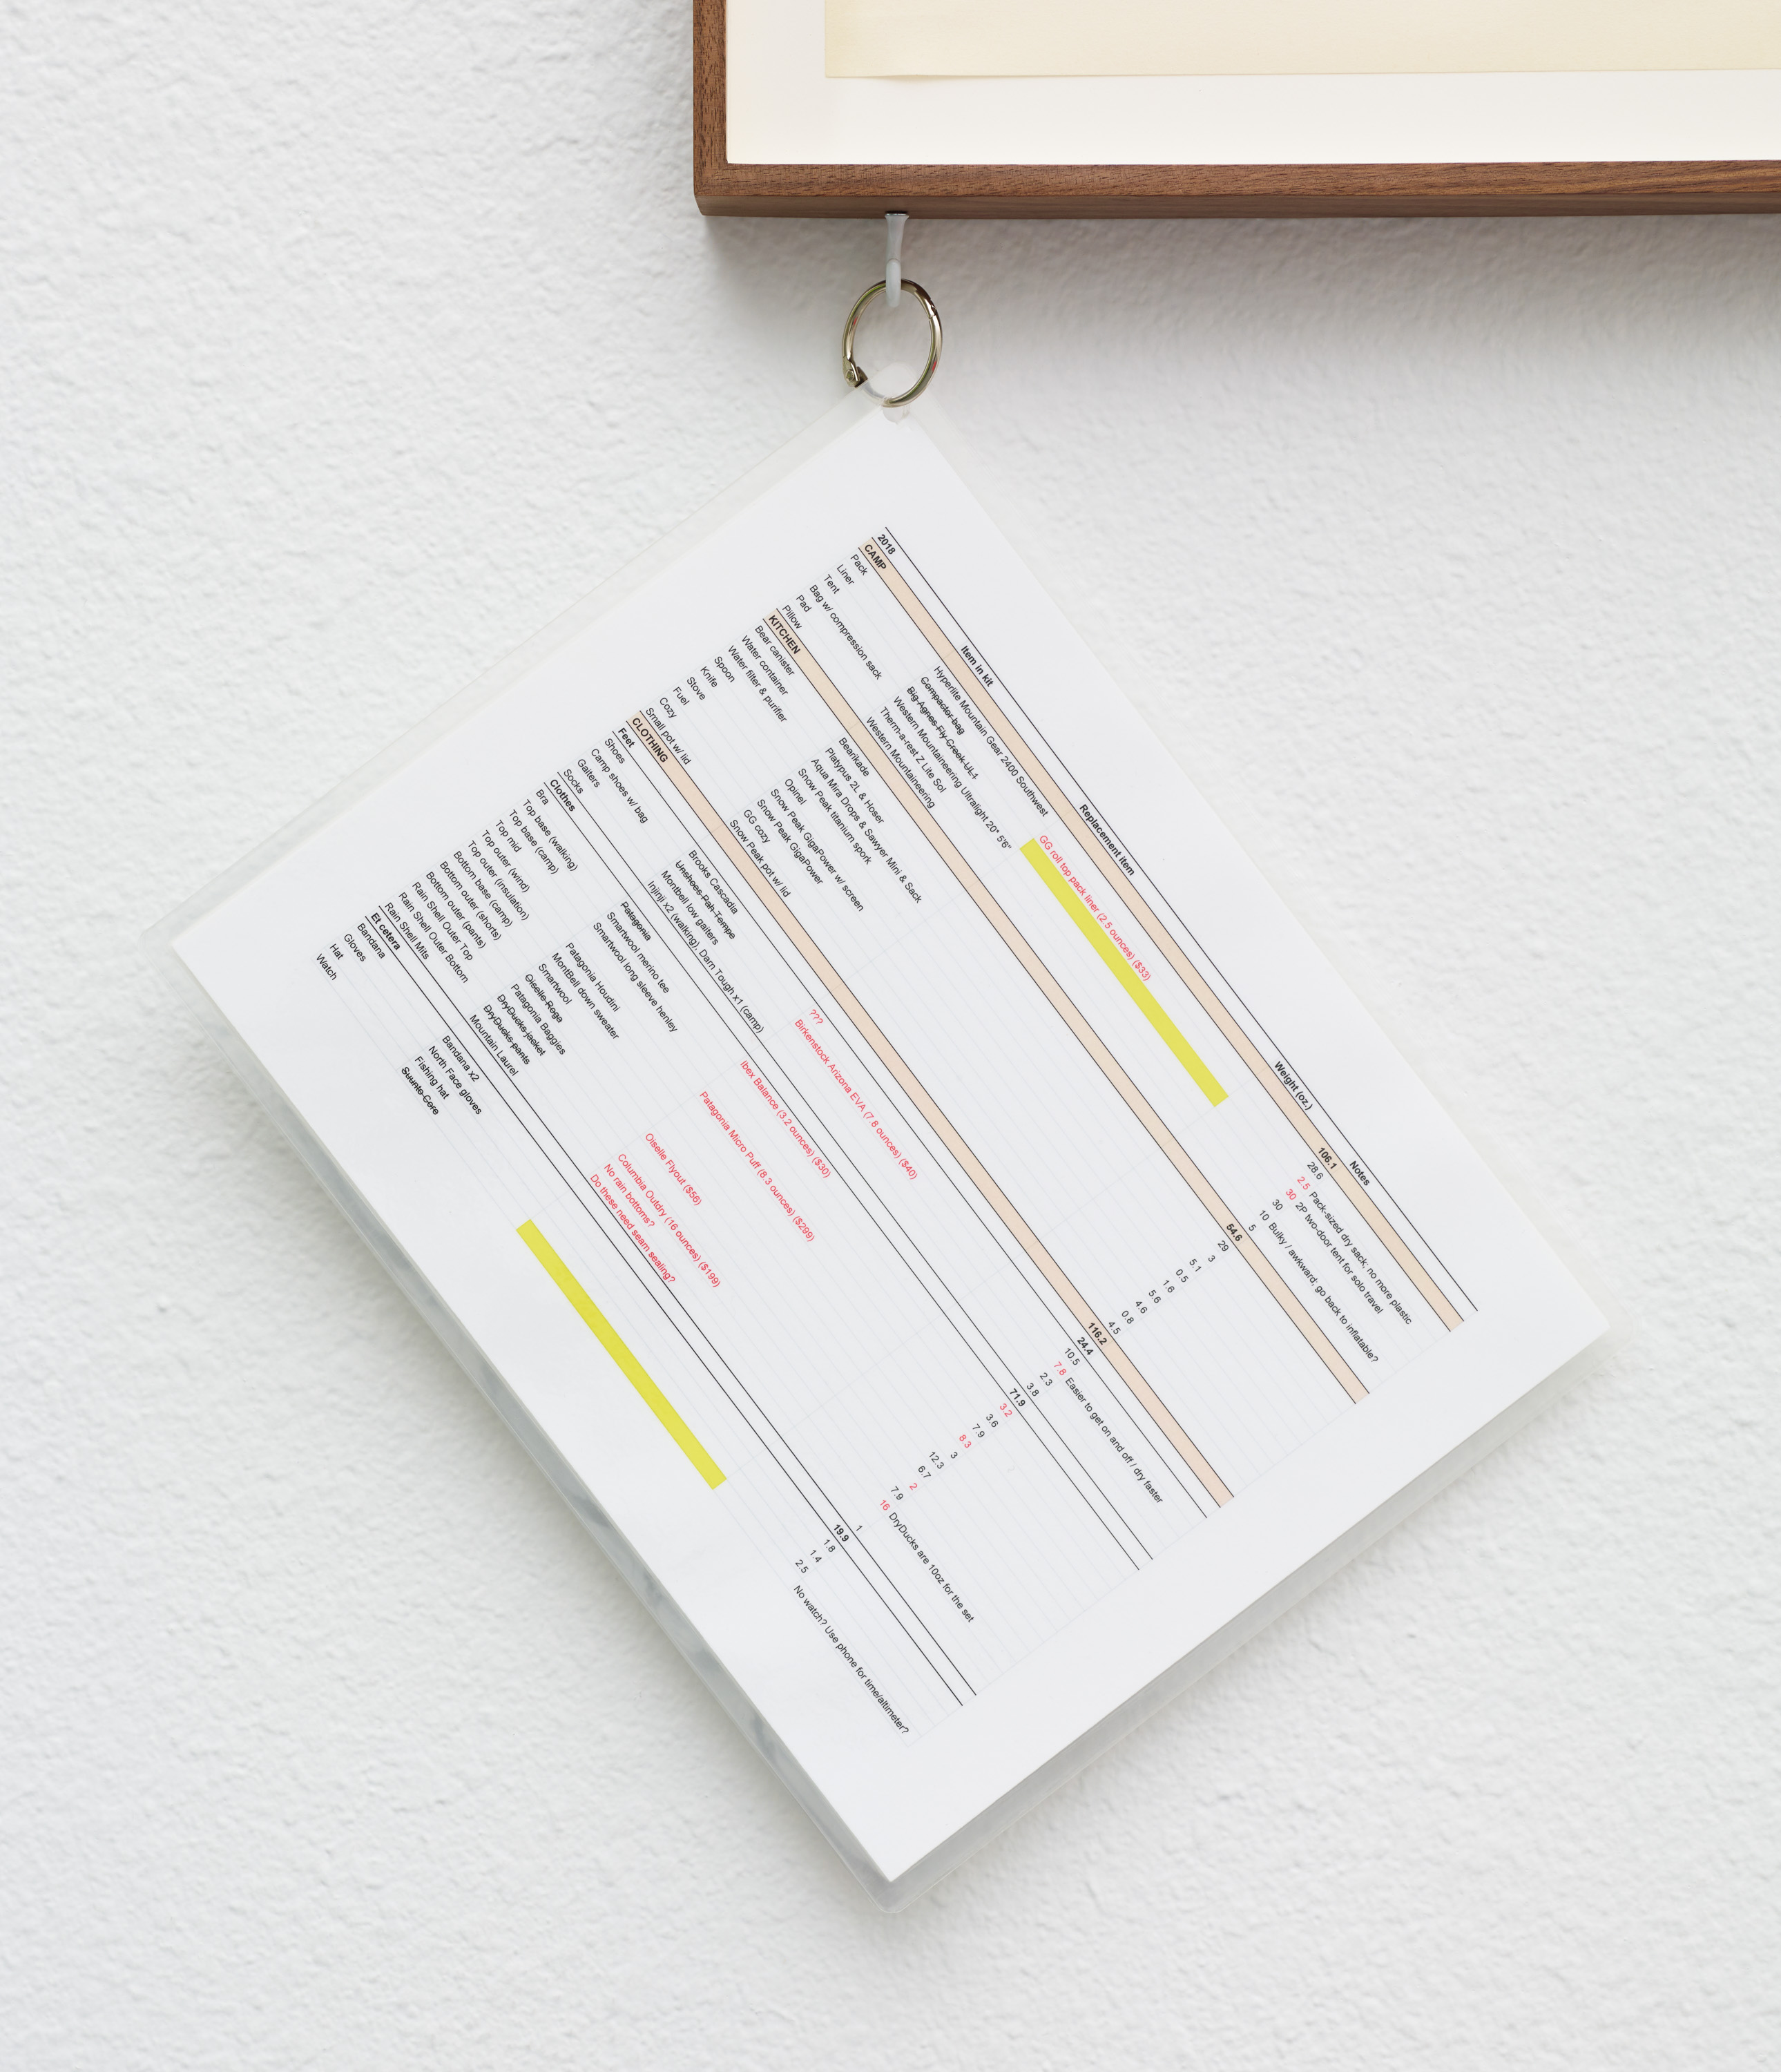 2018 Item in kit Replacement item Weight (oz.) Notes
CAMP 106.1
Pack Hyperlite Mountain Gear 2400 Southwest 28.6
Liner Compactor bag GG roll top pack liner (2.5 ounces) ($33) 2.5 Pack-sized dry sack; no more plastic
Tent Big Agnes Fly Creek UL1 30 2P two-door tent for solo travel
Bag w/ compression sack Western Mountaineering Ultralight 20° 5'6" 30
Pad Therm-a-rest Z Lite Sol 10 Bulky / awkward; go back to inflatable?
Pillow Western Mountaineering 5
KITCHEN 54.6
Bear canister Bearikade 29
Water container Platypus 2L & Hoser 3
Water filter & purifier Aqua Mira Drops & Sawyer Mini & Sack 5.1
Spoon Snow Peak titanium spork 0.5
Knife Opinel 1.6
Stove Snow Peak GigaPower w/ screen 5.6
Fuel Snow Peak GigaPower 4.6
Cozy GG cozy 0.8
Small pot w/ lid Snow Peak pot w/ lid 4.5
CLOTHING 116.2
Feet 24.4
Shoes Brooks Cascadia ??? 10.5
Camp shoes w/ bag Unshoes Pah Tempe Birkenstock Arizona EVA (7.8 ounces) ($40) 7.8 Easier to get on and off / dry faster
Gaiters Montbell low gaiters 2.3
Socks Injinji x2 (walking), Darn Tough x1 (camp) 3.8
Clothes 71.9
Bra Patagonia Ibex Balance (3.2 ounces) ($30) 3.2
Top base (walking) Smartwool merino tee 3.6
Top base (camp) Smartwool long sleeve henley 7.9
Top mid Patagonia Micro Puff (8.3 ounces) ($299) 8.3
Top outer (wind) Patagonia Houdini 3
Top outer (insulation) MontBell down sweater 12.3
Bottom base (camp) Smartwool 6.7
Bottom outer (shorts) Oiselle Roga Oiselle Flyout ($56) 2
Bottom outer (pants) Patagonia Baggies 7.9
Rain Shell Outer Top DryDucks jacket Columbia Outdry (16 ounces) ($199) 16 DryDucks are 10oz for the set
Rain Shell Outer Bottom DryDucks pants No rain bottoms?
Rain Shell Mitts Mountain Laurel Do these need seam sealing? 1
Et cetera 19.9
Bandana Bandana x2 1.8
Gloves North Face gloves 1.4
Hat Fishing hat 2.5
Watch Suunto Core No watch? Use phone for time/altimeter?